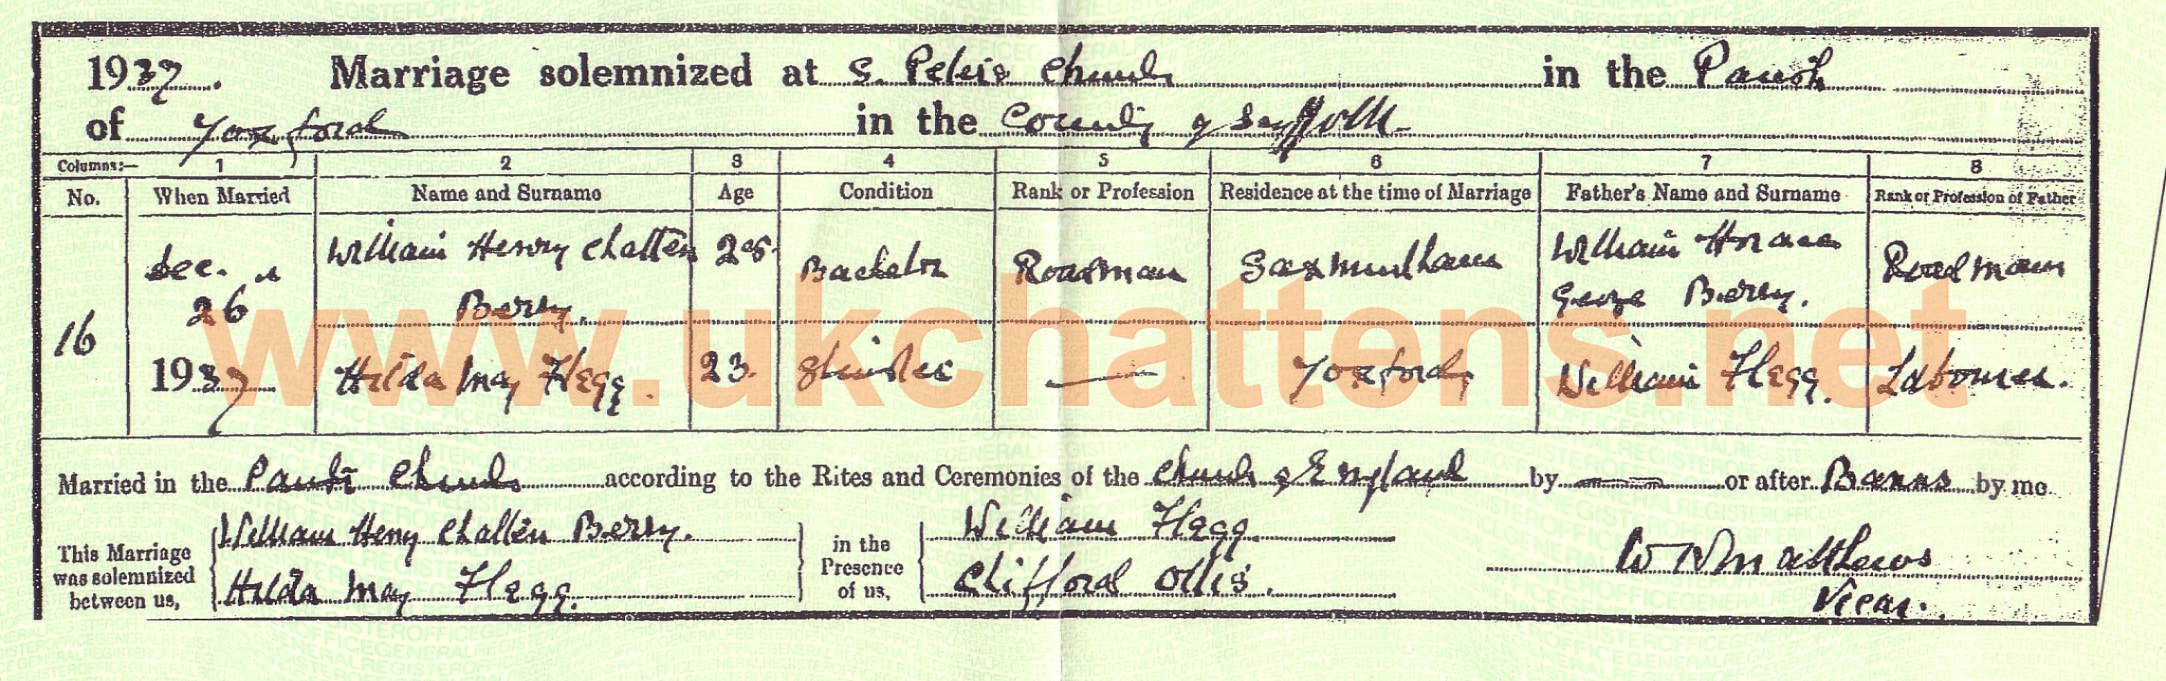 1937. Marriage solemnized at S. Peter's Church in the Parish
of Yoxford in the County of Suffolk
Columns:— 1 2 3 4 5 6 7 8
No. When Married Name and Surname Age Condition Rank or Profession Residence at the time of Marriage Father's Name and Surname Rank or Profession of Father
16 Dec. 26 1937
William Henry Chatten Berry. 25. Bachelor Roadman Saxmundham William Horace George Berry. Roadman
Hilda May Flegg. 23. Spinster — Yoxford William Flegg. Labourer.
Married in the Parish Church according to the Rites and Ceremonies of the Church of England by — or after Banns by me
This Marriage was solemnized between us,
William Henry Chatten Berry.
Hilda May Flegg.
in the Presence of us,
William Flegg.
Clifford Ollis.
W N Matthews
Vicar.
www.ukchattens.net